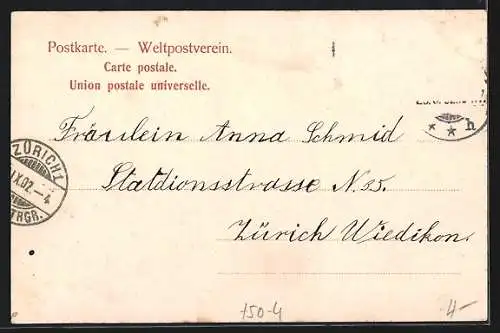 Postkarte. — Weltpostverein.
Carte postale.
Union postale universelle.
Fräulein Anna Schmid
Statdionsstrasse N. 55.
Zürich Wiedikon.
ZÜRICH 1
IX.02.—4
h
150-4
4—